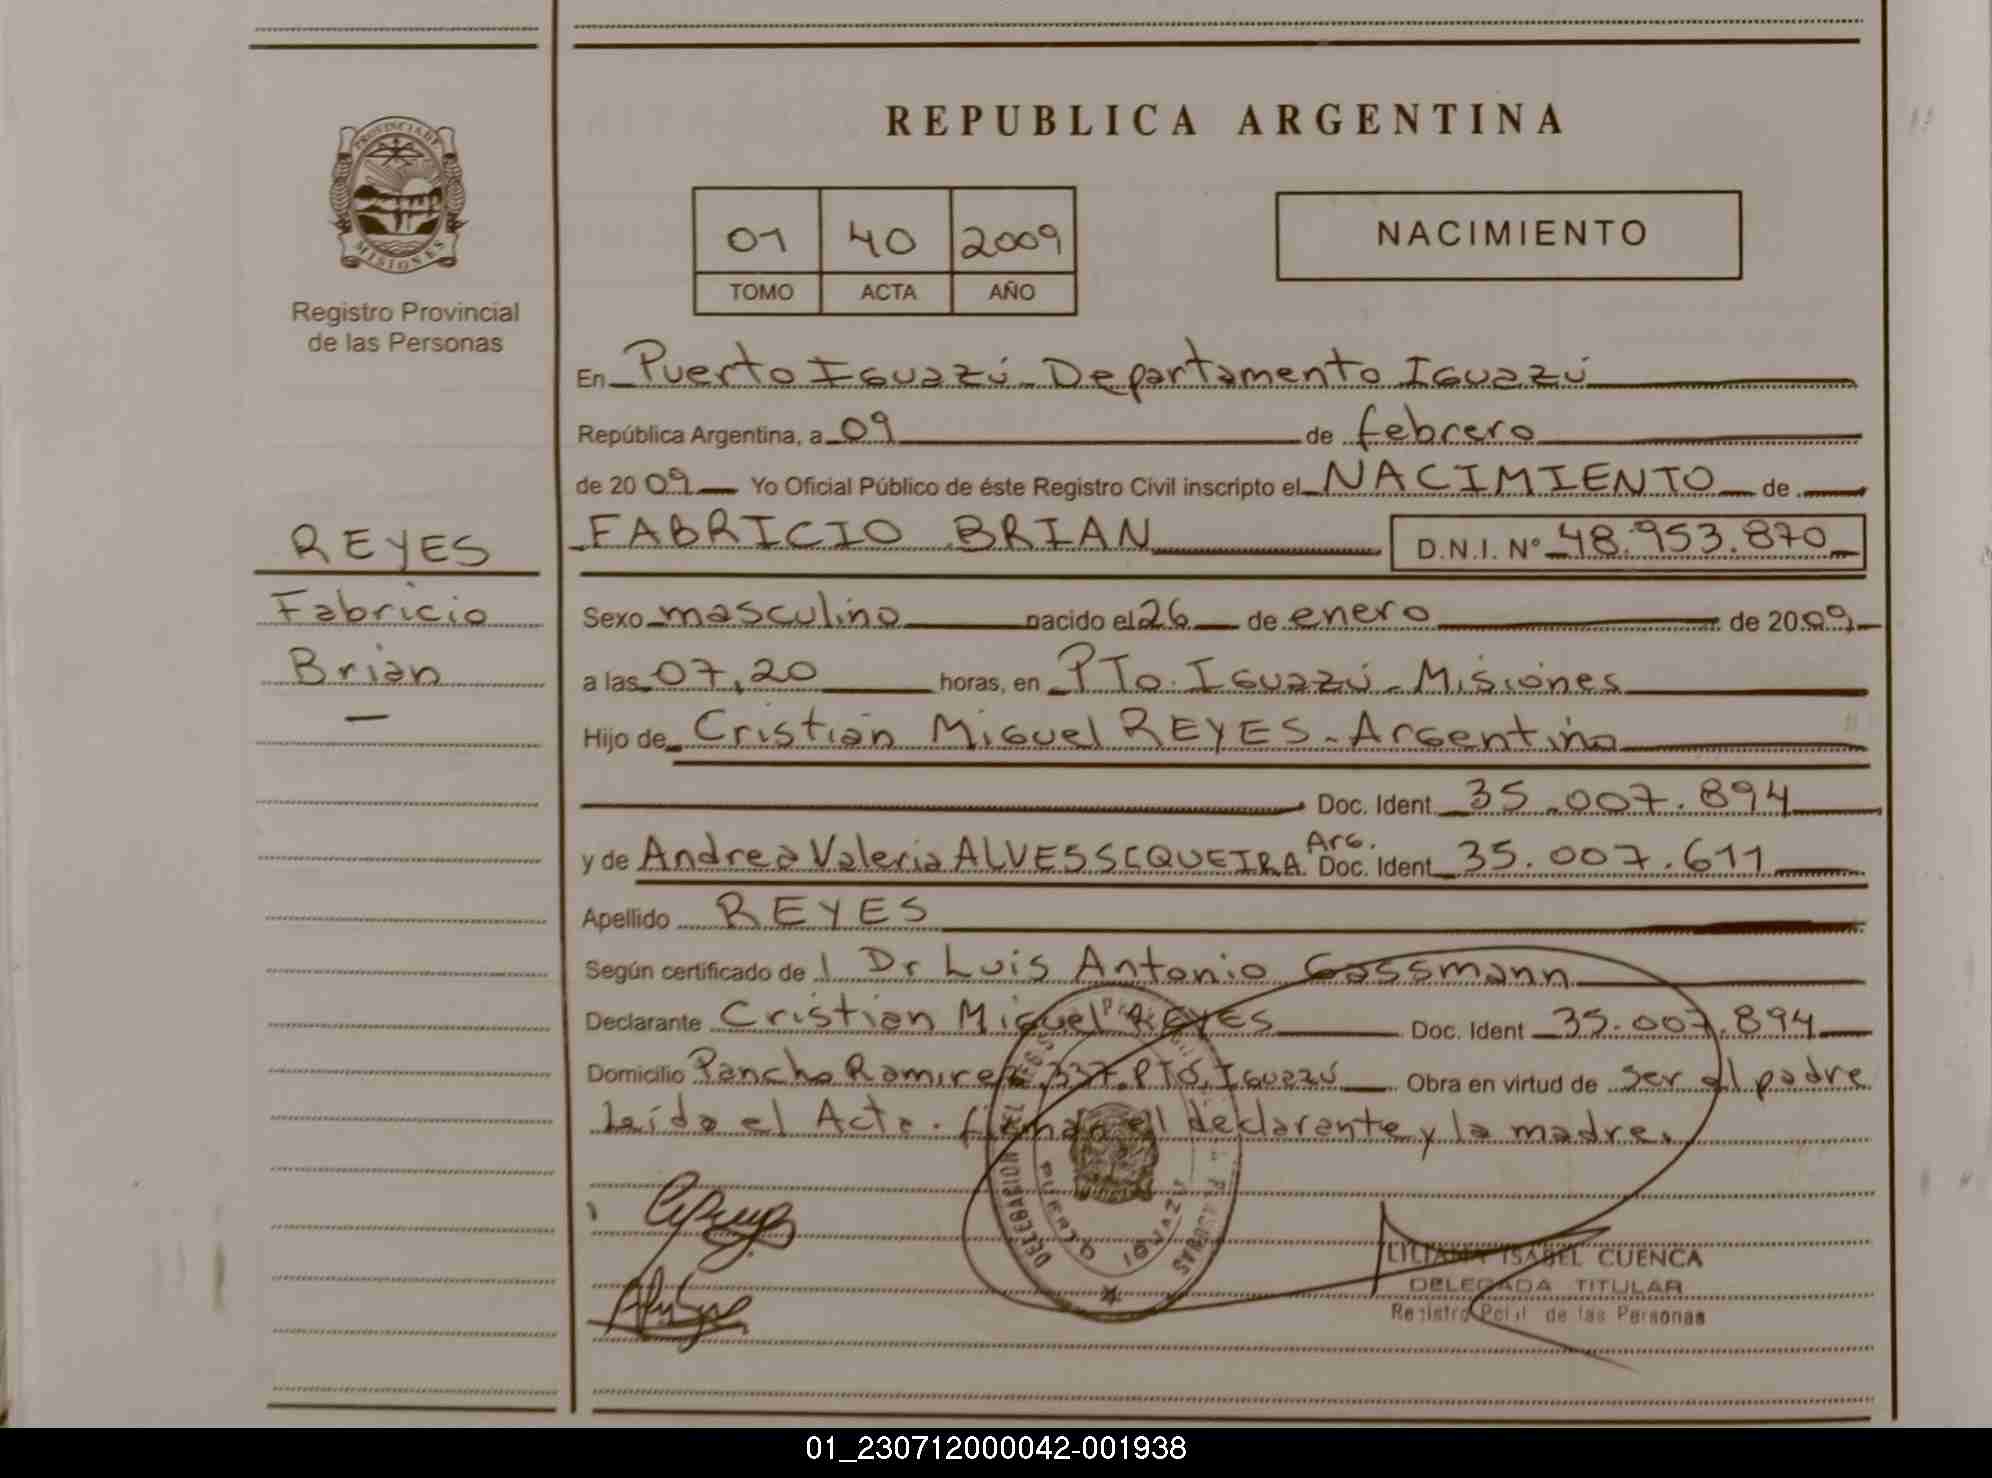 PROVINCIA DE
MISIONES
Registro Provincial
de las Personas
REYES
Fabricio
Brian
—
REPUBLICA ARGENTINA
01 40 2009
TOMO ACTA AÑO
NACIMIENTO
En Puerto Iguazú - Departamento Iguazú
República Argentina, a 09 de febrero
de 2009 Yo Oficial Público de éste Registro Civil inscripto el NACIMIENTO de
FABRICIO BRIAN D.N.I. Nº 48.953.870
Sexo masculino nacido el 26 de enero de 2009
a las 07,20 horas, en PTo. Iguazú - Misiones
Hijo de Cristian Miguel REYES - Argentino
Doc. Ident. 35.007.894
y de Andrea Valeria ALVES SEQUEIRA Arg. Doc. Ident. 35.007.611
Apellido REYES
Según certificado de Dr Luis Antonio Gassmann
Declarante Cristian Miguel REYES Doc. Ident 35.007.894
Domicilio Pancho Ramirez 337. PTO. Iguazú Obra en virtud de ser el padre
Leída el Acta. firman el declarante y la madre.
DELEGACION
PUERTO IGUAZU
PERSONAS
LILIANA ISABEL CUENCA
DELEGADA TITULAR
Registro de las Personas
01_230712000042-001938